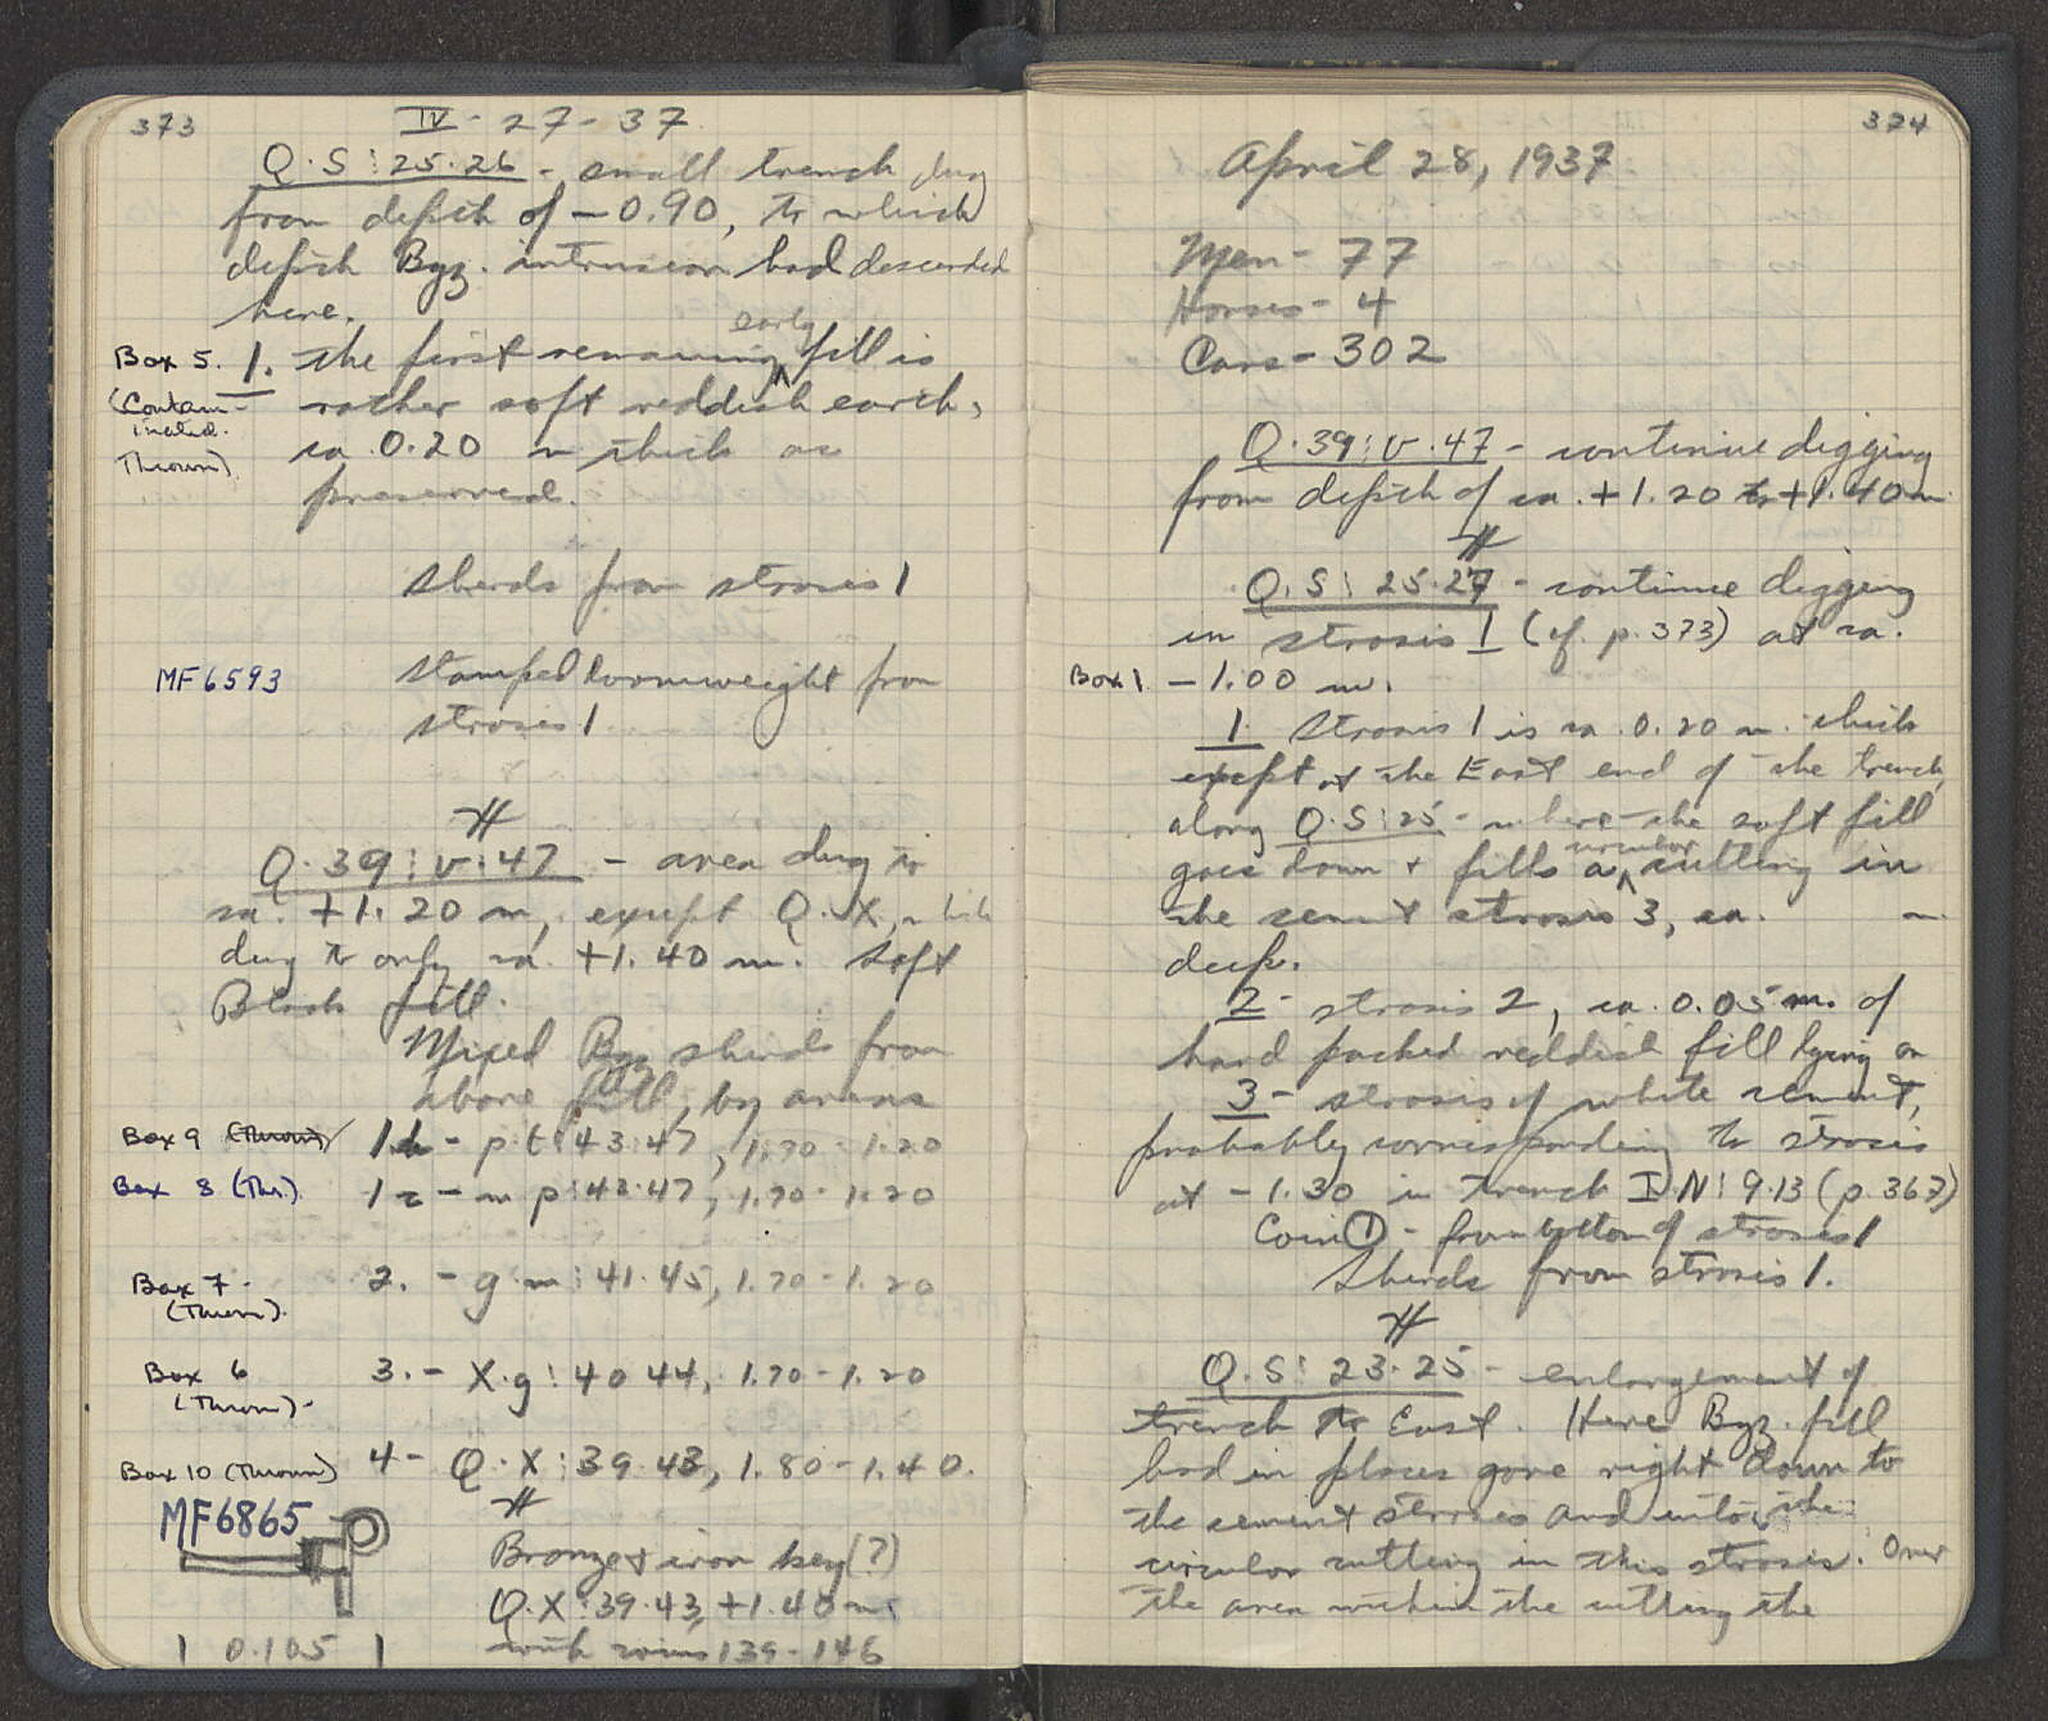 373
IV - 27 - 37
Q·S : 25·26 - small trench dug
from depth of -0.90, to which
depth Byz. intrusion had descended
here.
early
Box 5. 1. the first remaining ^ fill is
(Contam- rather soft reddish earth,
inated.
Thrown) ca 0.20 m thick as
preserved.
Sherds from strosis 1
MF 6593 stamped loomweight from
strosis 1
Q·39 : v·47 - area dug to
ca. +1.20 m, except Q·X, which
dug to only ca. +1.40 m. Soft
Black fill.
Mixed Byz sherds from
above fill, by areas
Box 9 (Thrown) 1b - p·t : 43·47, 1.70 - 1.20
Box 8 (Thr.) 1a - m p : 42·47, 1.70 - 1.20
Box 7 - 2. - g·m : 41·45, 1.70 - 1.20
(Thrown).
Box 6 3. - X·g : 40 44, 1.70 - 1.20
(Thrown).
Box 10 (Thrown) 4 - Q·X : 39·43, 1.80 - 1.40.
MF6865
Bronze & iron key (?)
Q·X : 39·43, +1.40 m.
0.105 with coins 139 - 146
374
April 28, 1937
Men - 77
Horses - 4
Cars - 302
Q·39 : v·47 - continue digging
from depth of ca. +1.20 to +1.40 m.
Q·S : 25·27 - continue digging
in strosis 1 (cf. p. 373) at ca.
Box 1 -1.00 m.
1. Strosis 1 is ca. 0.20 m. thick
except at the East end of the trench,
along Q·S : 25 - where the soft fill
circular
goes down & fills a ^ cutting in
the cement strosis 3, ca. m.
deep.
2 - strosis 2, ca. 0.05 m. of
hard packed reddish fill lying on
3 - strosis of white cement,
probably corresponding to strosis
at -1.30 in trench I·N : 9·13 (p. 367)
Coin 1 - from bottom of strosis 1
Sherds from strosis 1.
Q·S : 23·25 - enlargement of
trench to East. Here Byz. fill
had in places gone right down to
the cement strosis and into the
circular cutting in this strosis. Over
the area within the cutting the